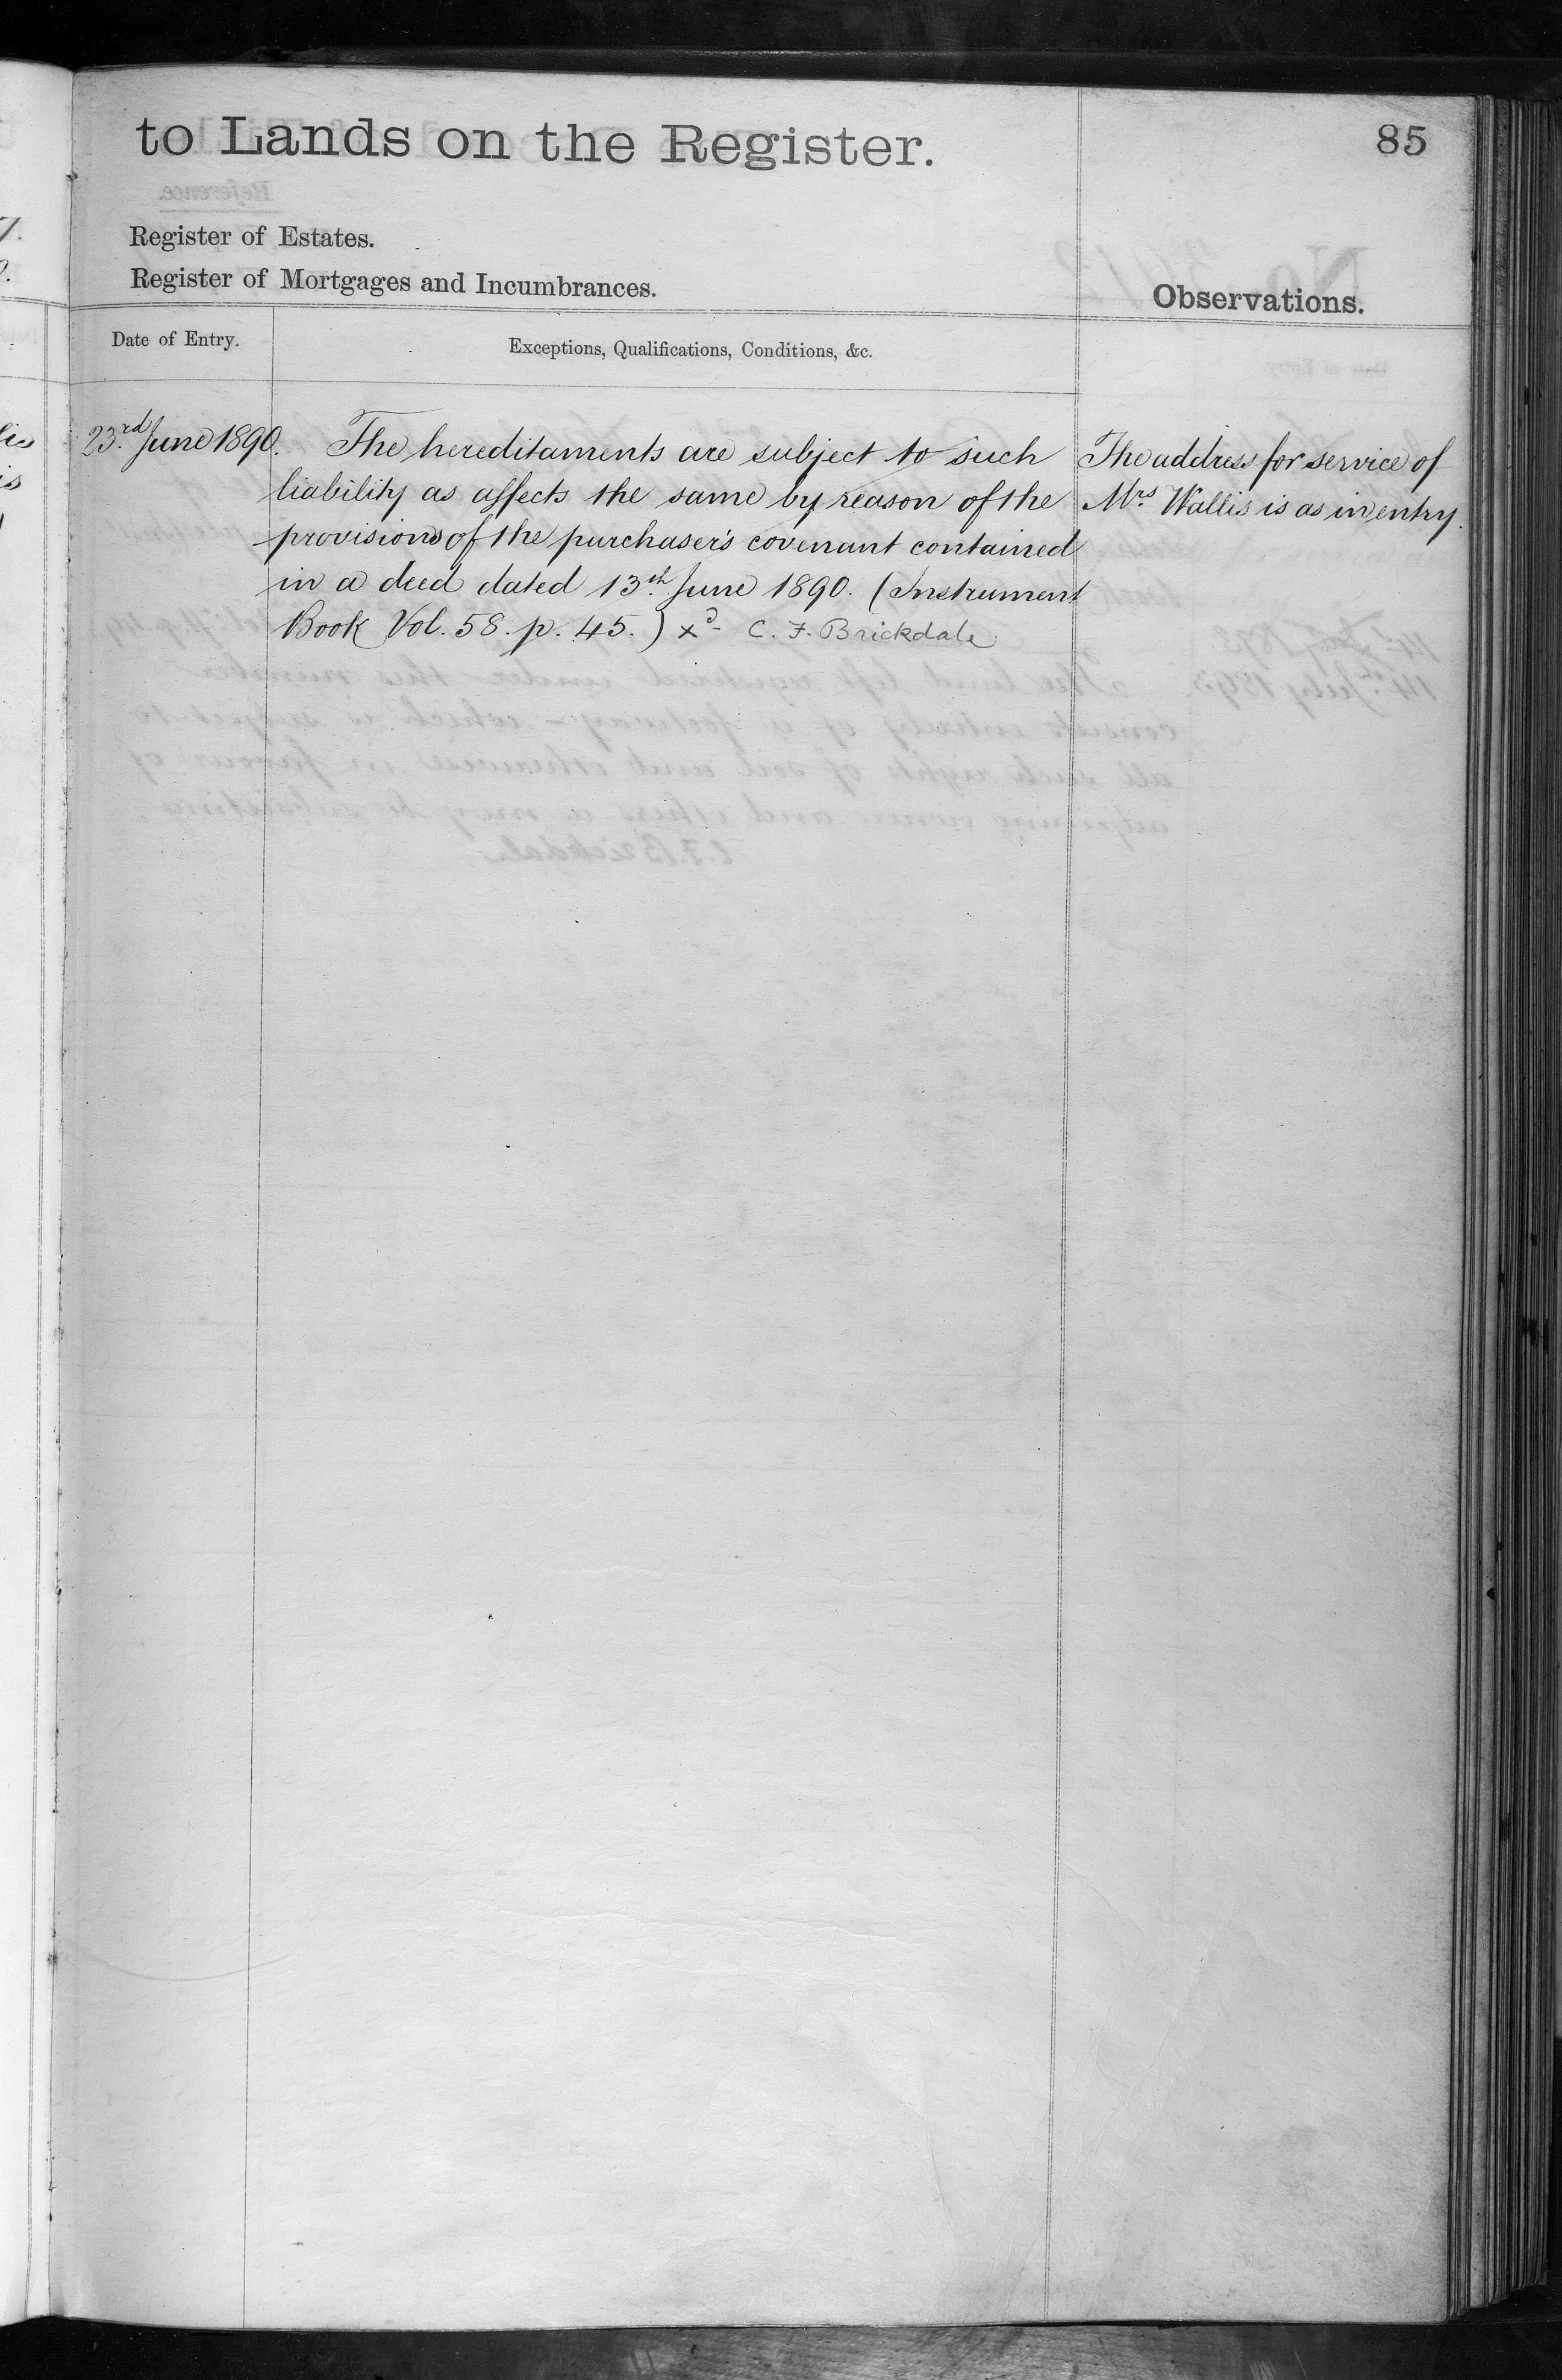 to Lands on the Register.
85
Register of Estates.
Register of Mortgages and Incumbrances.
Observations.
Date of Entry.
Exceptions, Qualifications, Conditions, &c.
23.rd June 1890.
The hereditaments are subject to such
liability as affects the same by reason of the
provisions of the purchaser's covenant contained
in a deed dated 13.th June 1890. (Instrument
Book Vol. 58. p. 45.) xd- C. F. Brickdale
The address for service of
Mrs. Wallis is as in entry.